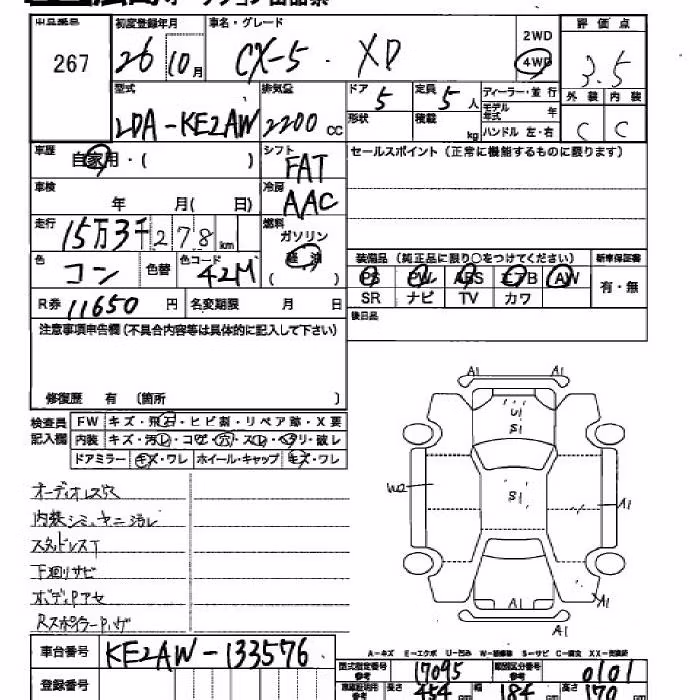 出品番号 初度登録年月 車名・グレード 2WD 評価点
267 26 10月 CX-5 XD 4WD 3.5
型式 排気量 ドア 定員 ディーラー・並行 外装 内装
LDA-KE2AW 2200cc 5 5人 モデル年式 年 C C
形状 積載 kg ハンドル 左・右
車歴 自家用・( ) シフト FAT セールスポイント(正常に機能するものに限ります)
車検 年 月( 日) 冷房 AAC
走行 15万3千278km 燃料 ガソリン 軽油 ( )
色 コン 色替 色コード 42M
装備品(純正品に限り○をつけてください) 新車保証書
PS PW ABS エアB AW 有・無
SR ナビ TV カワ
R券 11650円 名変期限 月 日 後日品
注意事項申告欄(不具合内容等は具体的に記入して下さい)
修復歴 有 (箇所 )
検査員記入欄 FW キズ・飛石・ヒビ割・リペア跡・X要
内装 キズ・汚レ・コゲ・穴・スレ・ヘタリ・破レ
ドアミラー キズ・ワレ ホイール・キャップ キズ・ワレ
オーディオレス穴
内装シミ、ヤニ汚レ
スタッドレスT
下廻リサビ
ボディPアセ
RスポイラーPハゲ
A1 A1
U1
S1
W2 S1 A1
A1 A1
A1
A-キズ E-エクボ U-凹み W-補修跡 S-サビ C-腐食 XX-交換済
車台番号 KE2AW-133576
型式指定番号 17095 類別区分番号 0101
登録番号 長さ 454 cm 幅 184 cm 高さ 170